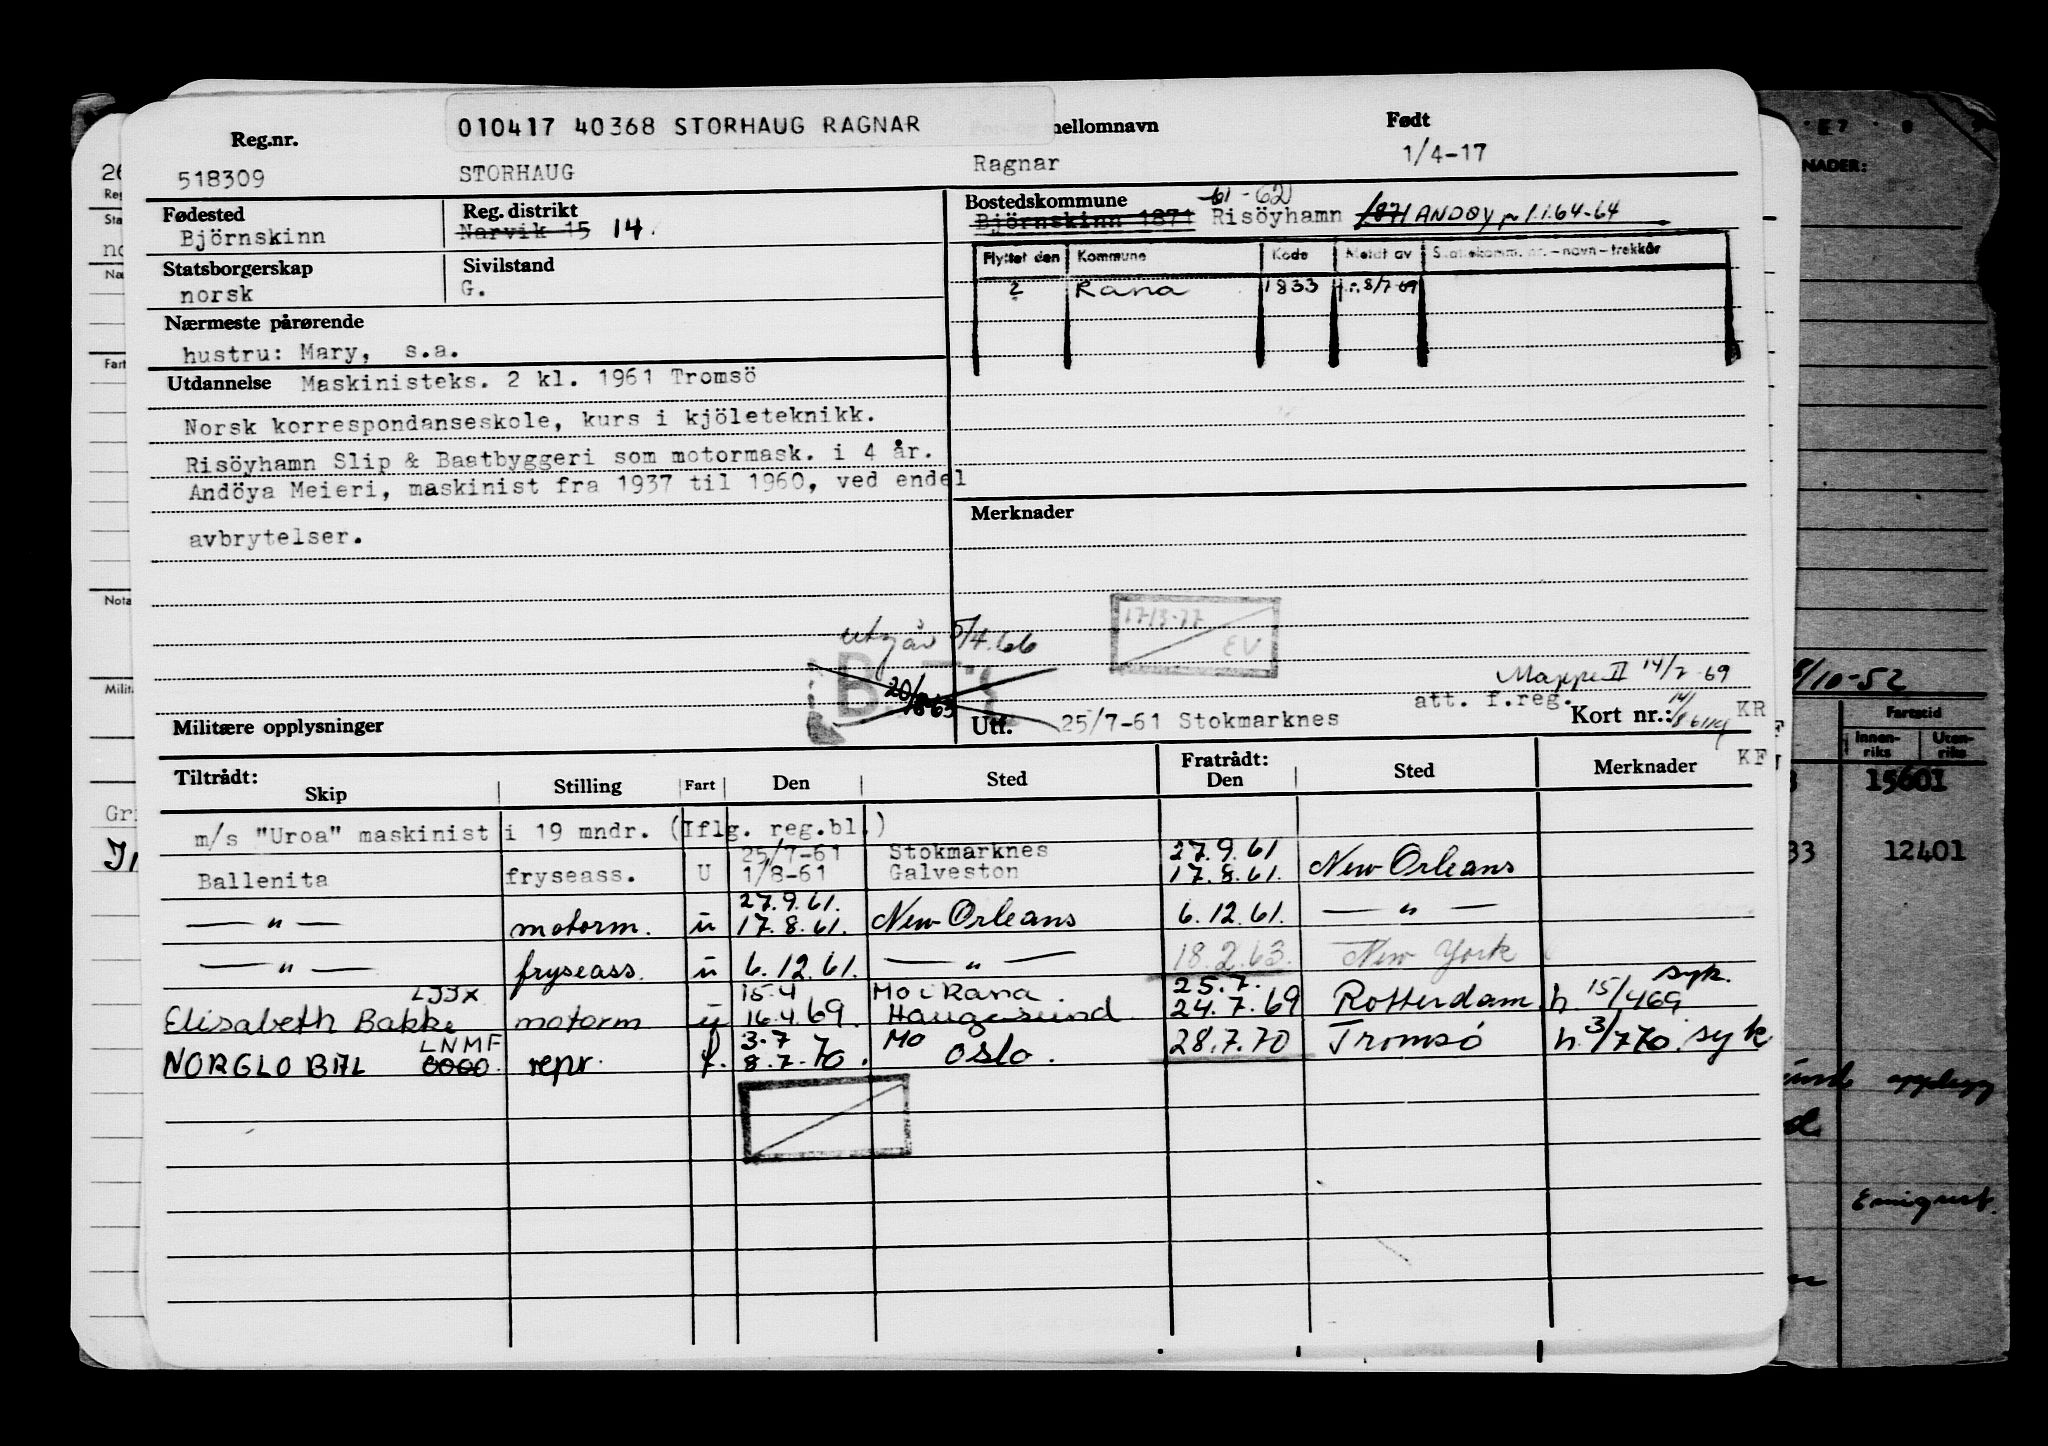 010417 40368 STORHAUG RAGNAR
Reg.nr. mellomnavn Født
518309 STORHAUG Ragnar 1/4-17
Fødested Reg. distrikt Bostedskommune 61-62
Björnskinn Narvik 15 14. Björnskinn 1871 Risöyhamn 1871 ANDØY pr 1.1.64-64
Statsborgerskap Sivilstand Flyttet den Kommune Kode Meldt av Skattekomm. nr. – navn – trekkår
norsk G. ? Rana 1833 8/7-69
Nærmeste pårørende
hustru: Mary, s.a.
Utdannelse Maskinisteks. 2 kl. 1961 Tromsö
Norsk korrespondanseskole, kurs i kjöleteknikk.
Risöyhamn Slip & Baatbyggeri som motormask. i 4 år.
Andöya Meieri, maskinist fra 1937 til 1960, ved endel
Merknader
avbrytelser.
utgår 5/4.66
EV
20/8-63
Mappe II 14/2-69
att. f.reg.
Militære opplysninger Utf. 25/7-61 Stokmarknes Kort nr.: KR
KF
Tiltrådt: Fratrådt:
Skip Stilling Fart Den Sted Den Sted Merknader
m/s "Uroa" maskinist i 19 mndr. (Iflg. reg.bl.)
25/7-61 Stokmarknes 27.9.61
Ballenita fryseass. U 1/8-61 Galveston 17.8.61. New Orleans
27.9.61.
— " — motorm. u 17.8.61. New Orleans 6.12.61. — " —
— " — fryseass. u 6.12.61. — " — 18.2.63. New York
LJJX 15.4 Mo i Rana 25.7. syk.
Elisabeth Bakke motorm u 16.4.69. Haugesund 24.7.69 Rotterdam h. 15/469
LNMF 3.7 Mo
NORGLOBAL 0000 repr. f. 8.7.70. Oslo. 28.7.70 Tromsö h. 3/770. syk
26
Reg
Sta
no
Fart
Nota
Milit
Gr
NADER:
/10-52
Fartstid
Innen-riks Uten-riks
15601
33 12401
opplegg
Emigrert.